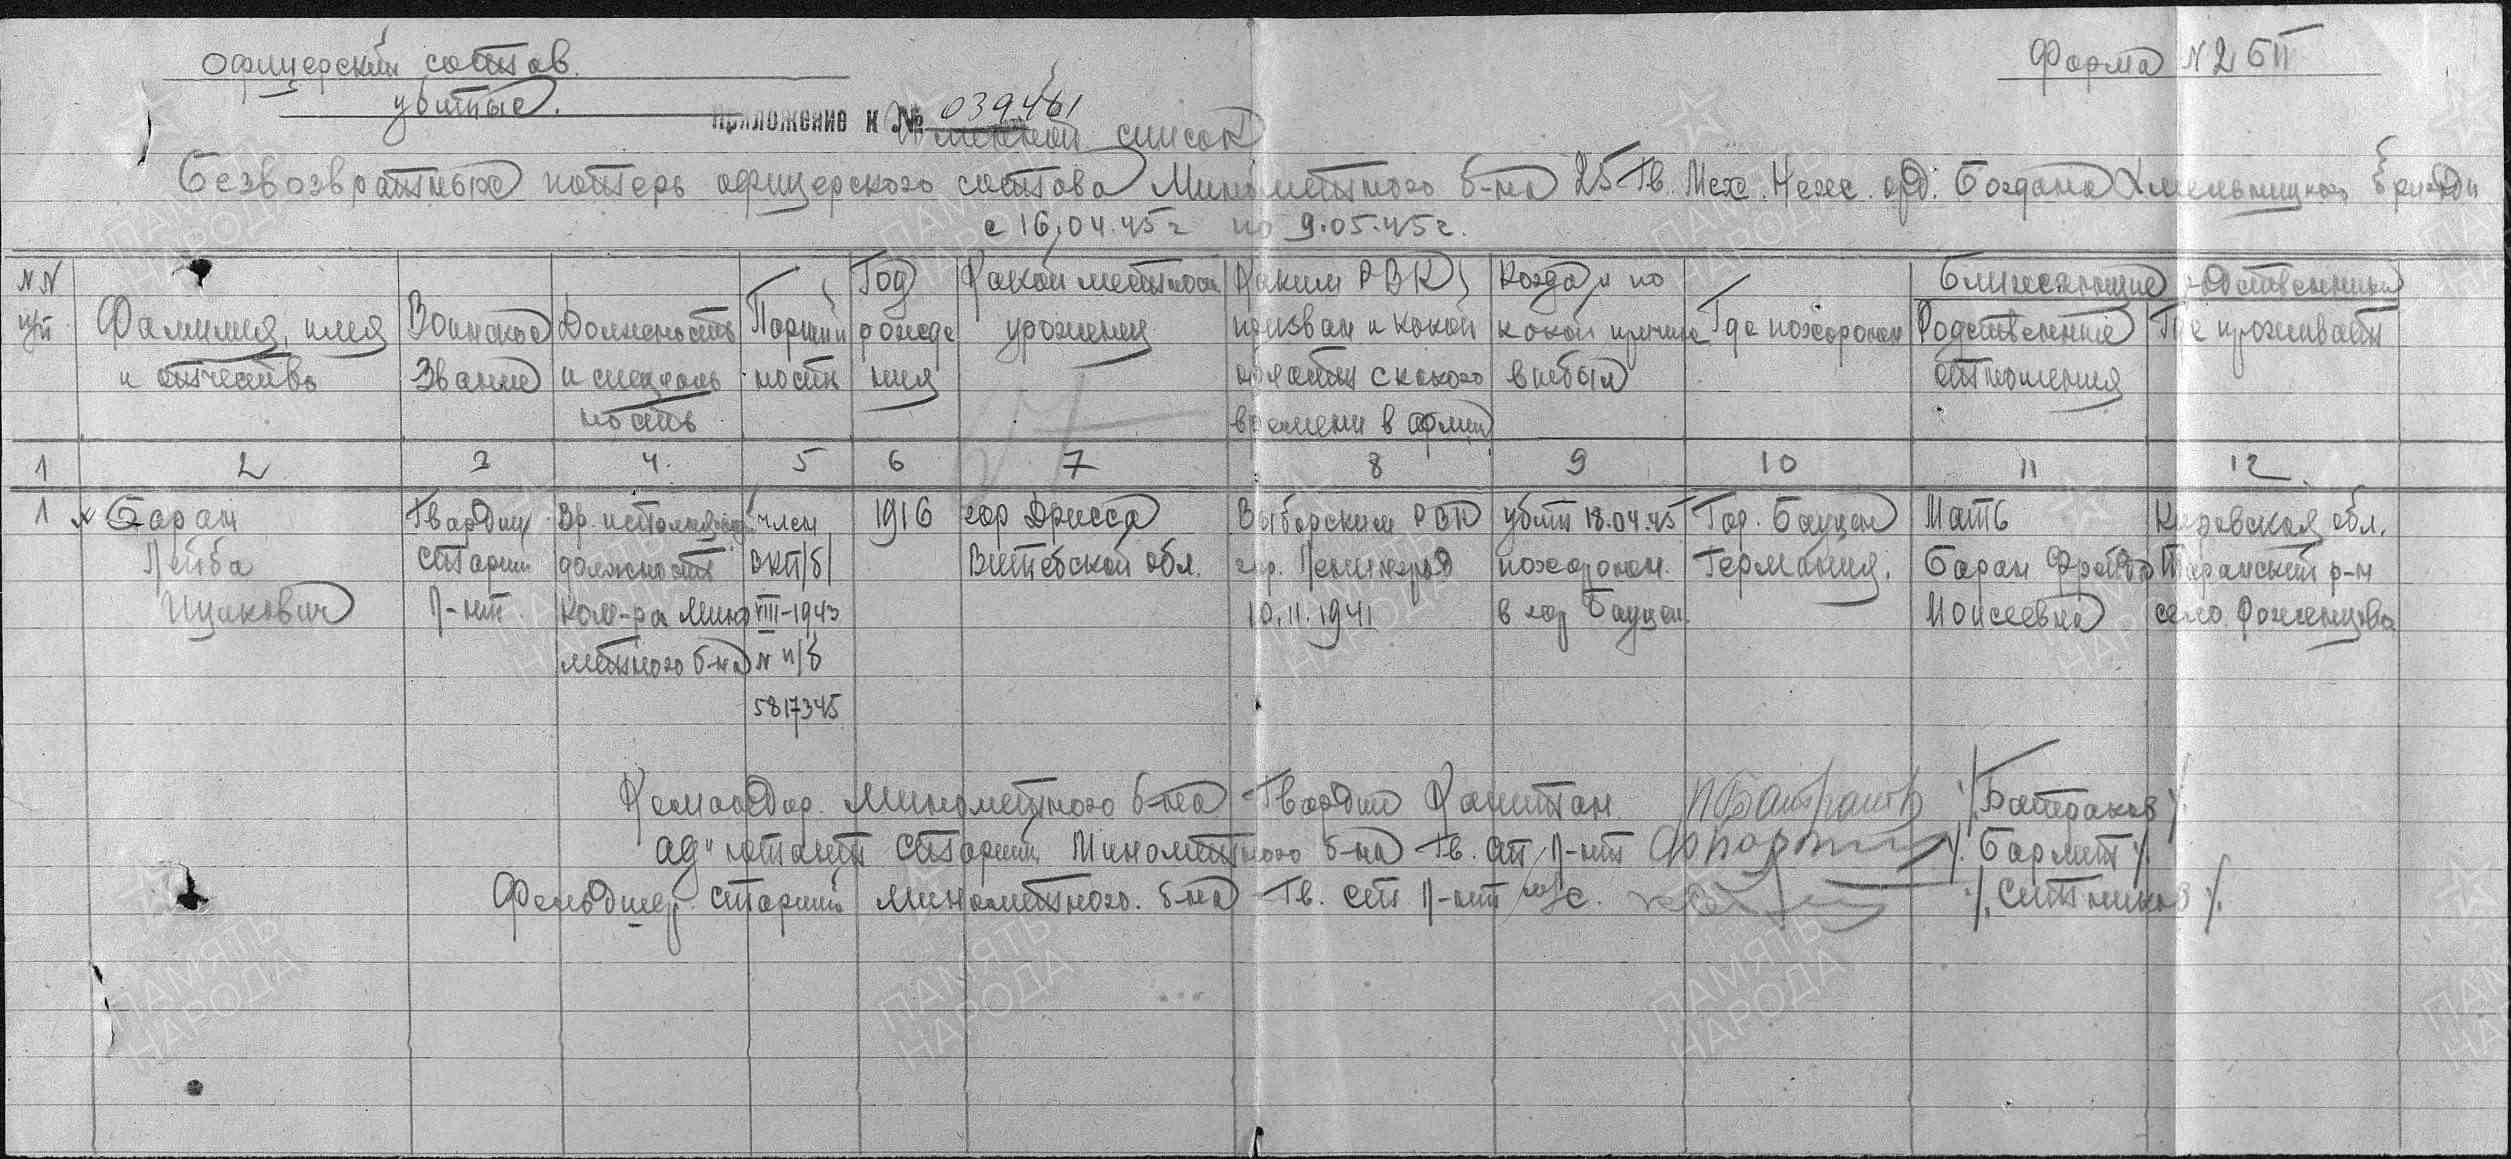 Офицерский состав.
Форма N 2 БП
убитые.
Приложение к № 039461
Именной список
Безвозвратных потерь офицерского состава Минометного б-на 25 Гв. Мех. Неж. орд. Богдана Хмельницкого бригады
с 16.04.45г по 9.05.45г.
NN п/п
Фамилия, имя и отчество
Воинское звание
Должность и специальность
Партийность
Год рождения
Какой местности уроженец
Каким РВК призван и какой области с какого времени в армии
Когда и по какой причине выбыл
Где похоронен
Ближайшие родственники
Родственные отношения
Где проживают
1 2 3 4. 5 6 7 8 9 10 11 12
1 Баран Гвардии Вр. исполняющ. член 1916 гор Дрисса Выборгским РВК убит 18.04.45 Гор. Бауцен Мать Кировская обл.
Лейба старш должность ВКП/б/ Витебской обл. гор. Ленинград похоронен. Германия. Баран Фрейда р-н
Ицкович Л-нт ком-ра мино VIII-1943 10.11.1941 в гор Бауцен Моисеевна село
метного б-на N п/б
5817345
Командир Минометного б-на Гвардии Капитан /Батраков/
ад"ютант старший Минометного б-на Гв. ст Л-нт /. Бармит /.
Фельдшер старший минометного. б-на Гв. ст Л-нт м/с. /. Ситников /.
ПАМЯТЬ НАРОДА